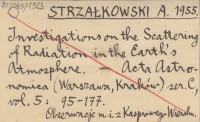 STRZAŁKOWSKI A. 1955
Investigations on the Scattering
of Radiation in the Earth's
Atmosphere. — Acta Astro-
nomica (Warszawa, Kraków) ser. C,
vol. 5: 95-177.
Obserwacje m.i. z Kasprowego Wierchu.